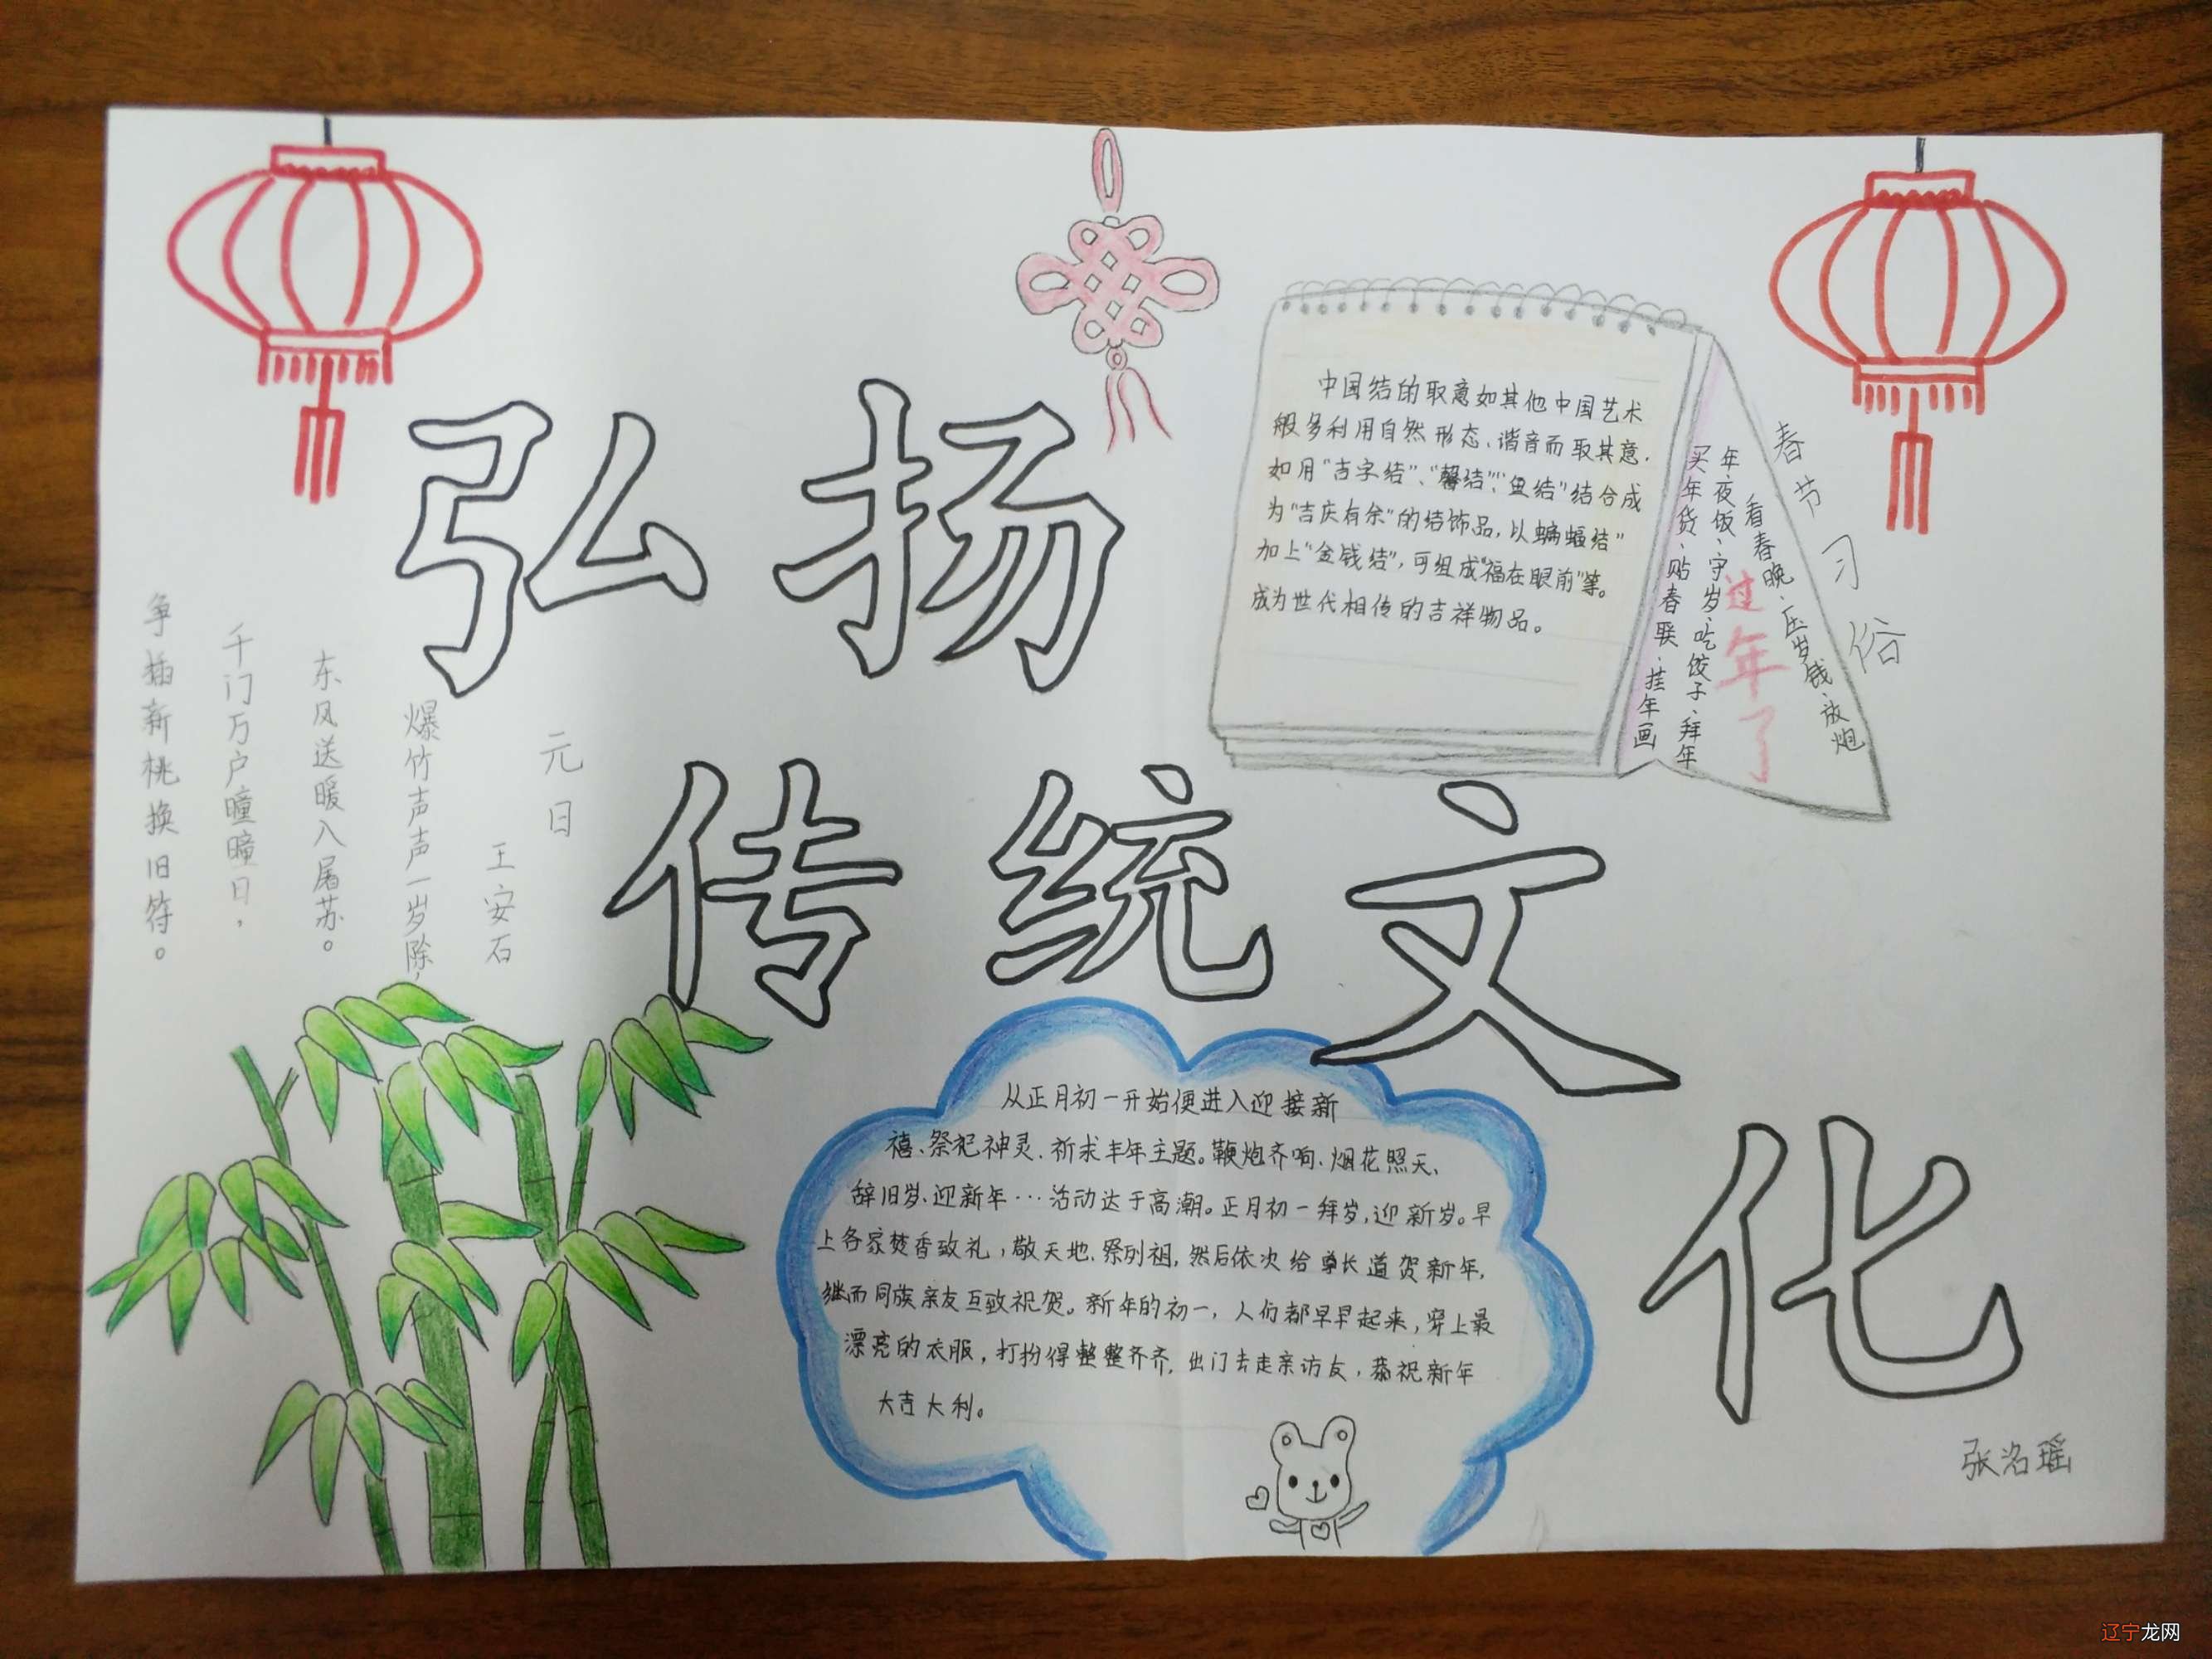 弘扬
传统文
化
元日
王安石
爆竹声声一岁除,
东风送暖入屠苏。
千门万户曈曈日，
争插新桃换旧符。
中国结的取意如其他中国艺术
般多利用自然形态、谐音而取其意.
如用"吉字结"、"馨结"、"鱼结"结合成
为"吉庆有余"的结饰品,以蝙蝠结"
加上"金钱结",可组成"福在眼前"等。
成为世代相传的吉祥物品。
春节习俗
看春晚、压岁钱、放炮
过年了
年夜饭、守岁、吃饺子、拜年
买年货、贴春联、挂年画
从正月初一开始便进入迎接新
禧、祭祀神灵、祈求丰年主题。鞭炮齐响、烟花照天、
辞旧岁、迎新年…活动达于高潮。正月初一拜岁,迎新岁。早
上各家焚香致礼,敬天地、祭列祖,然后依次给尊长道贺新年,
继而同族亲友互致祝贺。新年的初一,人们都早早起来,穿上最
漂亮的衣服,打扮得整整齐齐,出门去走亲访友,恭祝新年
大吉大利。
张洺瑶
辽宁龙网